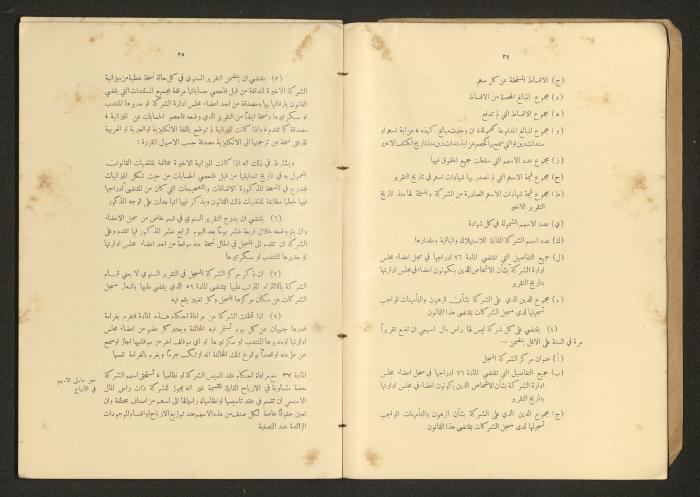 ٣٤
(ج) الاقساط المستحقة عن كل سهم
(د) مجموع المبالغ المحصلة من الاقساط
(ه) مجموع الاقساط التي لم تدفع
(و) مجموع المبالغ المدفوعة كعمولة، ان وجدت مبالغ كهذه، عن اية اسهم او
سندات دين او التي سمح بها كخصم عن اية سندات دين منذ تاريخ الكشف الاخير
(ز) مجموع عدد الاسهم التي سقطت جميع الحقوق فيها
(ح) مجموع قيمة الاسهم التي لم تصدر بها شهادات اسهم في تاريخ التقرير
(ط) مجموع قيمة شهادات الاسهم الصادرة من الشركة والمسلمة لها منذ تاريخ
التقرير الاخير
(ي) عدد الاسهم المشمولة في كل شهادة
(ك) عدد اسهم الشركة القابلة للاستهلاك والباقية ومقدارها
(ل) جميع التفاصيل التي تقتضي المادة ٧٦ ادراجها في سجل اعضاء مجلس
ادارة الشركة بشأن الاشخاص الذين يكونون اعضاء في مجلس ادارتها
بتاريخ التقرير
(م) مجموع الدين الذي على الشركة بشأن الرهون والتأمينات الواجب
تسجيلها لدى مسجل الشركات بمقتضى هذا القانون
(٤) يقتضى على كل شركة ليس لها رأس مال اسهمي ان تقدم تقريراً
مرة في السنة على الاقل يتضمن —
(أ) عنوان مركز الشركة المسجل
(ب) جميع التفاصيل التي تقتضي المادة ٧٦ ادراجها في سجل اعضاء مجلس
ادارة الشركة بشأن الاشخاص الذين يكونون اعضاء في مجلس ادارتها
بتاريخ التقرير
(ج) مجموع الدين الذي على الشركة بشأن الرهون والتأمينات الواجب
تسجيلها لدى مسجل الشركات بمقتضى هذا القانون
٣٥
(٥) يقتضى ان يتضمن التقرير السنوي في كل حالة نسخة خطية من ميزانية
الشركة الاخيرة المدققة من قبل فاحصي حساباتها مرفقة بجميع المستندات التي يقضي
القانون بارفاقها بها ومصدقة من احد اعضاء مجلس ادارة الشركة او مديرها المنتدب
او سكرتيرها ونسخة ايضاً من التقرير الذي وضعه فاحصو الحسابات عن الميزانية
مصدقة كما تقدم، واذا كانت الميزانية لم توضع باللغة الانكليزية او العبرية او العربية
فترفق نسخة من ترجمتها الى الانكليزية مصدقة حسب الاصول المقررة :
ويشترط في ذلك انه اذا كانت الميزانية الاخيرة مخالفة لمقتضيات القانون
المعمول به في تاريخ تدقيقها من قبل فاحصي الحسابات من حيث شكل الميزانيات
فتدرج في النسخة المذكورة الاضافات والتصحيحات التي كان من المقتضى ادراجها
فيها لجعلها مطابقة لمقتضيات ذلك القانون ويذكر فيها انها عدلت على الوجه المذكور
(٦) يقتضى ان يدرج التقرير السنوي في قسم خاص من سجل الاعضاء
وان يتم وضعه خلال اربعة عشر يوماً بعد اليوم الرابع عشر المذكور فيما تقدم وعلى
الشركة ان تقدم الى المسجل في الحال نسخة منه موقعة من احد اعضاء مجلس ادارتها
او مديرها المنتدب او سكرتيرها
(٧) ان ذكر مركز الشركة المسجل في التقرير السنوي لا يعني قيام
الشركة بالالتزام المترتب عليها بمقتضى المادة ٥٩ الذي يقضي عليها باشعار مسجل
الشركات عن مكان مركزها المسجل وكل تغيير يقع فيه
(٨) اذا تخلفت الشركة عن مراعاة احكام هذه المادة فتغرم بغرامة
قدرها جنيهان عن كل يوم تستمر فيه المخالفة ويعتبر كل عضو من اعضاء مجلس
ادارتها او مديرها المنتدب او سكرتيرها او اي موظف آخر من موظفيها اجاز او سمح
عن علم منه او قصداً بوقوع تلك المخالفة انه ارتكب جرماً ويغرم بالغرامة نفسها
حق حاملي الاسهم
في الارباح
المادة ٣٧ مع مراعاة احكام عقد تأسيس الشركة او نظامها، تستحق اسهم الشركة
حصة متساوية في الارباح القابلة للقسمة غير انه يجوز للشركة ذات رأس المال
الاسهمي ان تقسم في عقد تأسيسها او نظامها، رأسمالها الى اسهم من اصناف مختلفة وان
تعين حقوقاً خاصة لكل صنف من هذه الاسهم عند توزيع الارباح واقتسام الموجودات
الزائدة عند التصفية